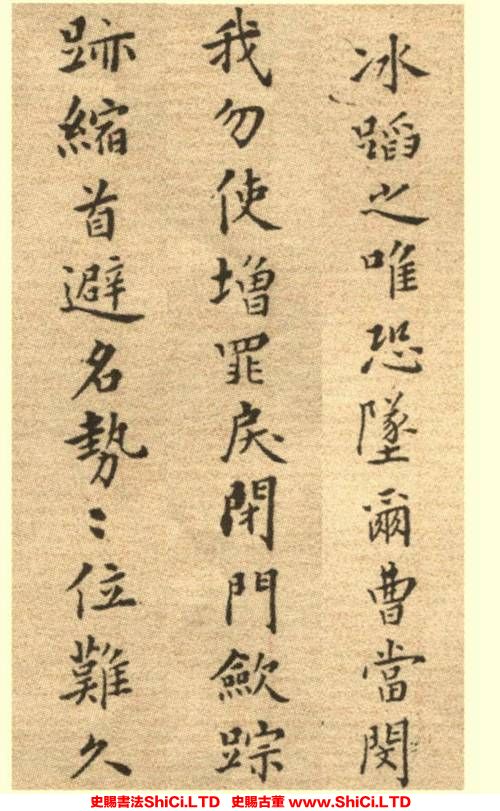 冰蹈之唯恐墜爾曹當閔
我勿使增罪戾閉門歛踪
跡縮首避名勢〻位難久
史賜書法ShiCi.LTD 史賜古董 www.ShiCi.LTD